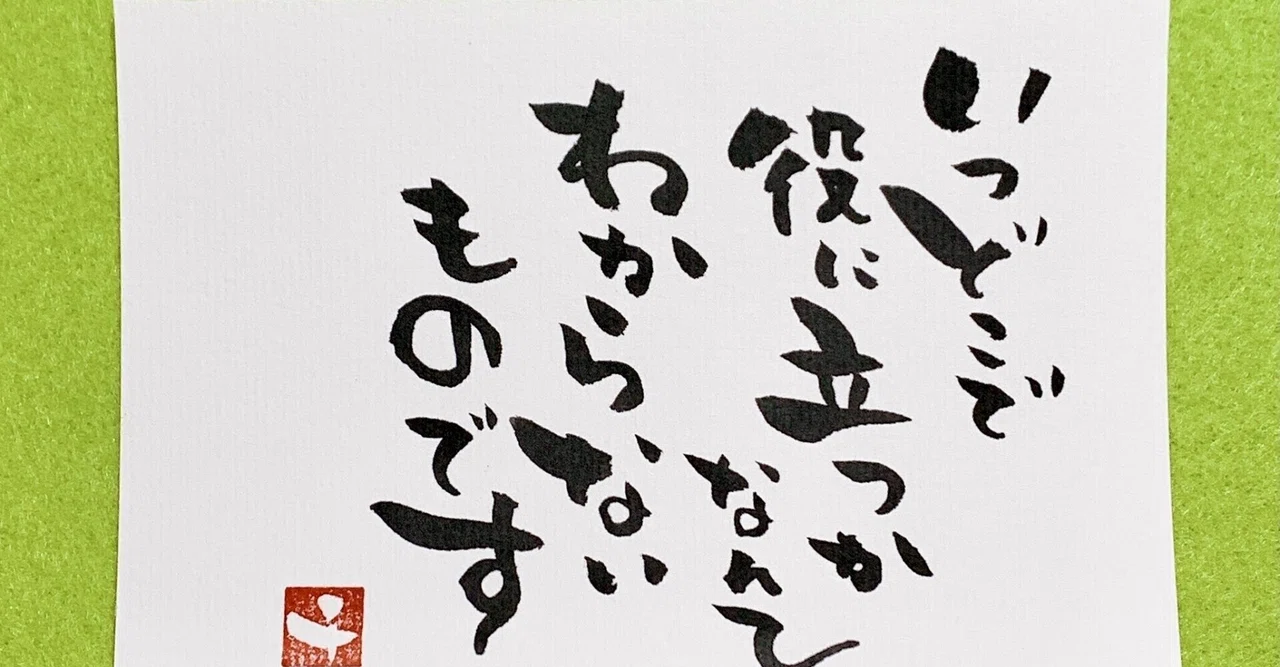 いつどこで
役に立つか
なんて
わからない
ものです